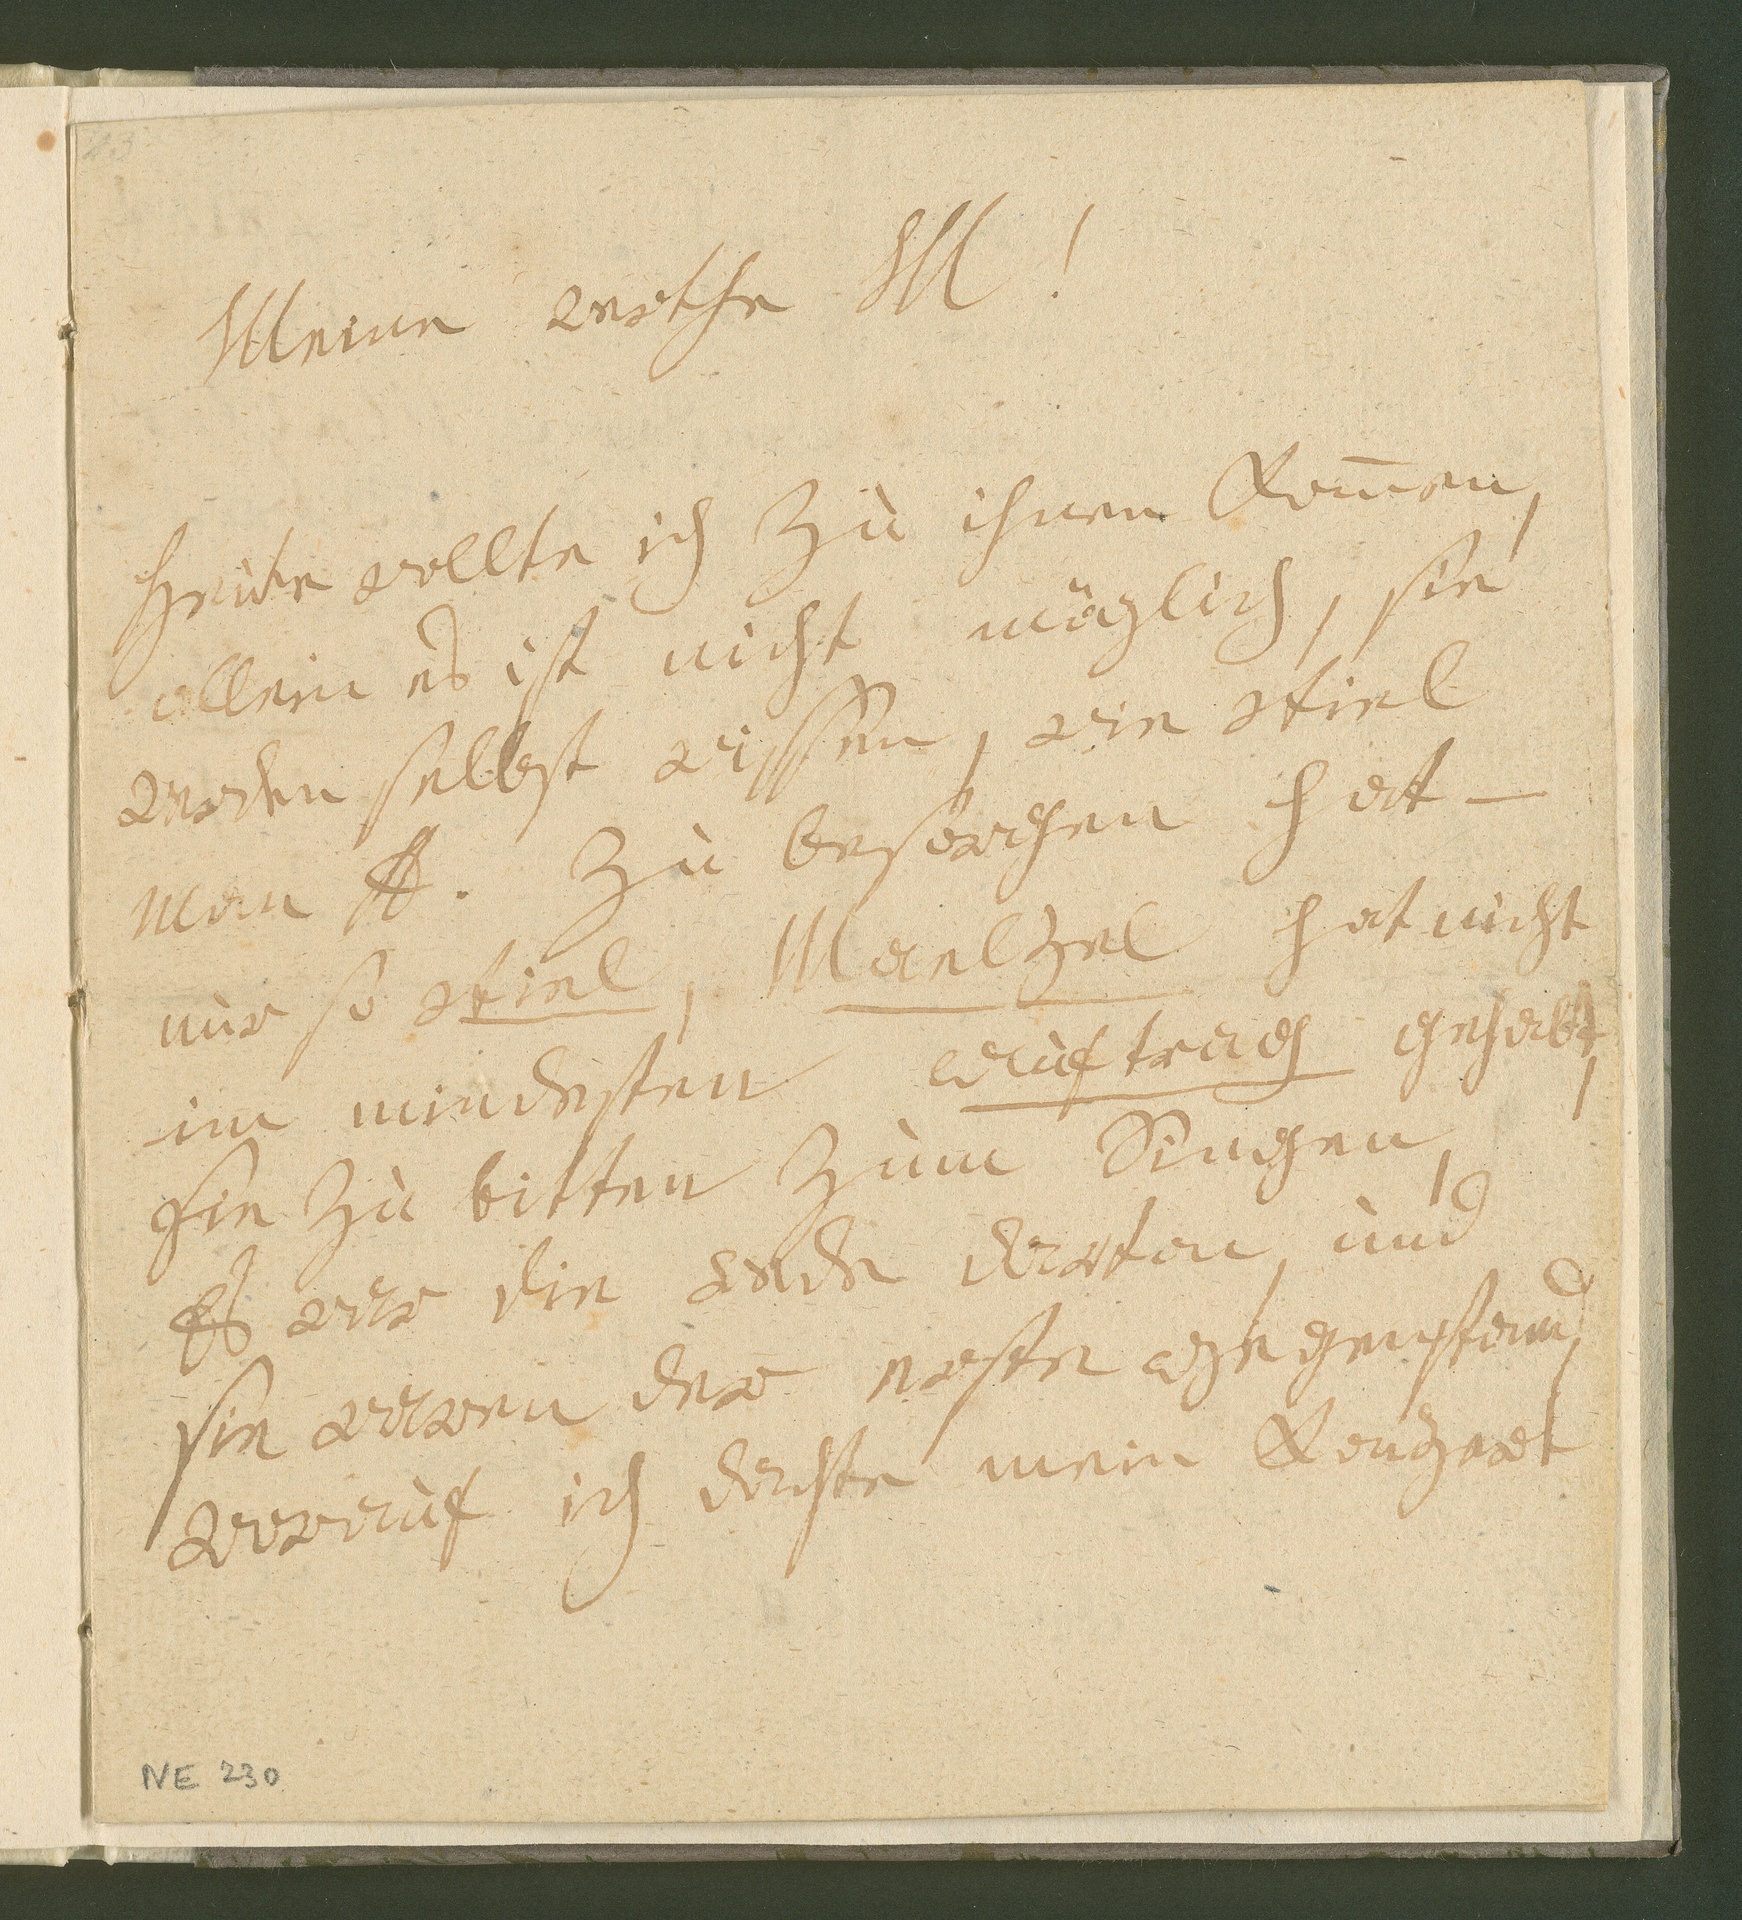 Meine werthe M!
heute wollte ich zu ihnen kom̅en,
allein es ist nicht möglich, sie
werden selbst wissen, wie viel
man A. zu besorgen hat –
nur so viel, Maelzel hat nicht
im mindesten auftrag gehabt,
sie zu bitten zum Singen,
Es war die rede davon, und
sie waren der erste gegenstand,
worauf ich dachte mein Konzert
NE 230